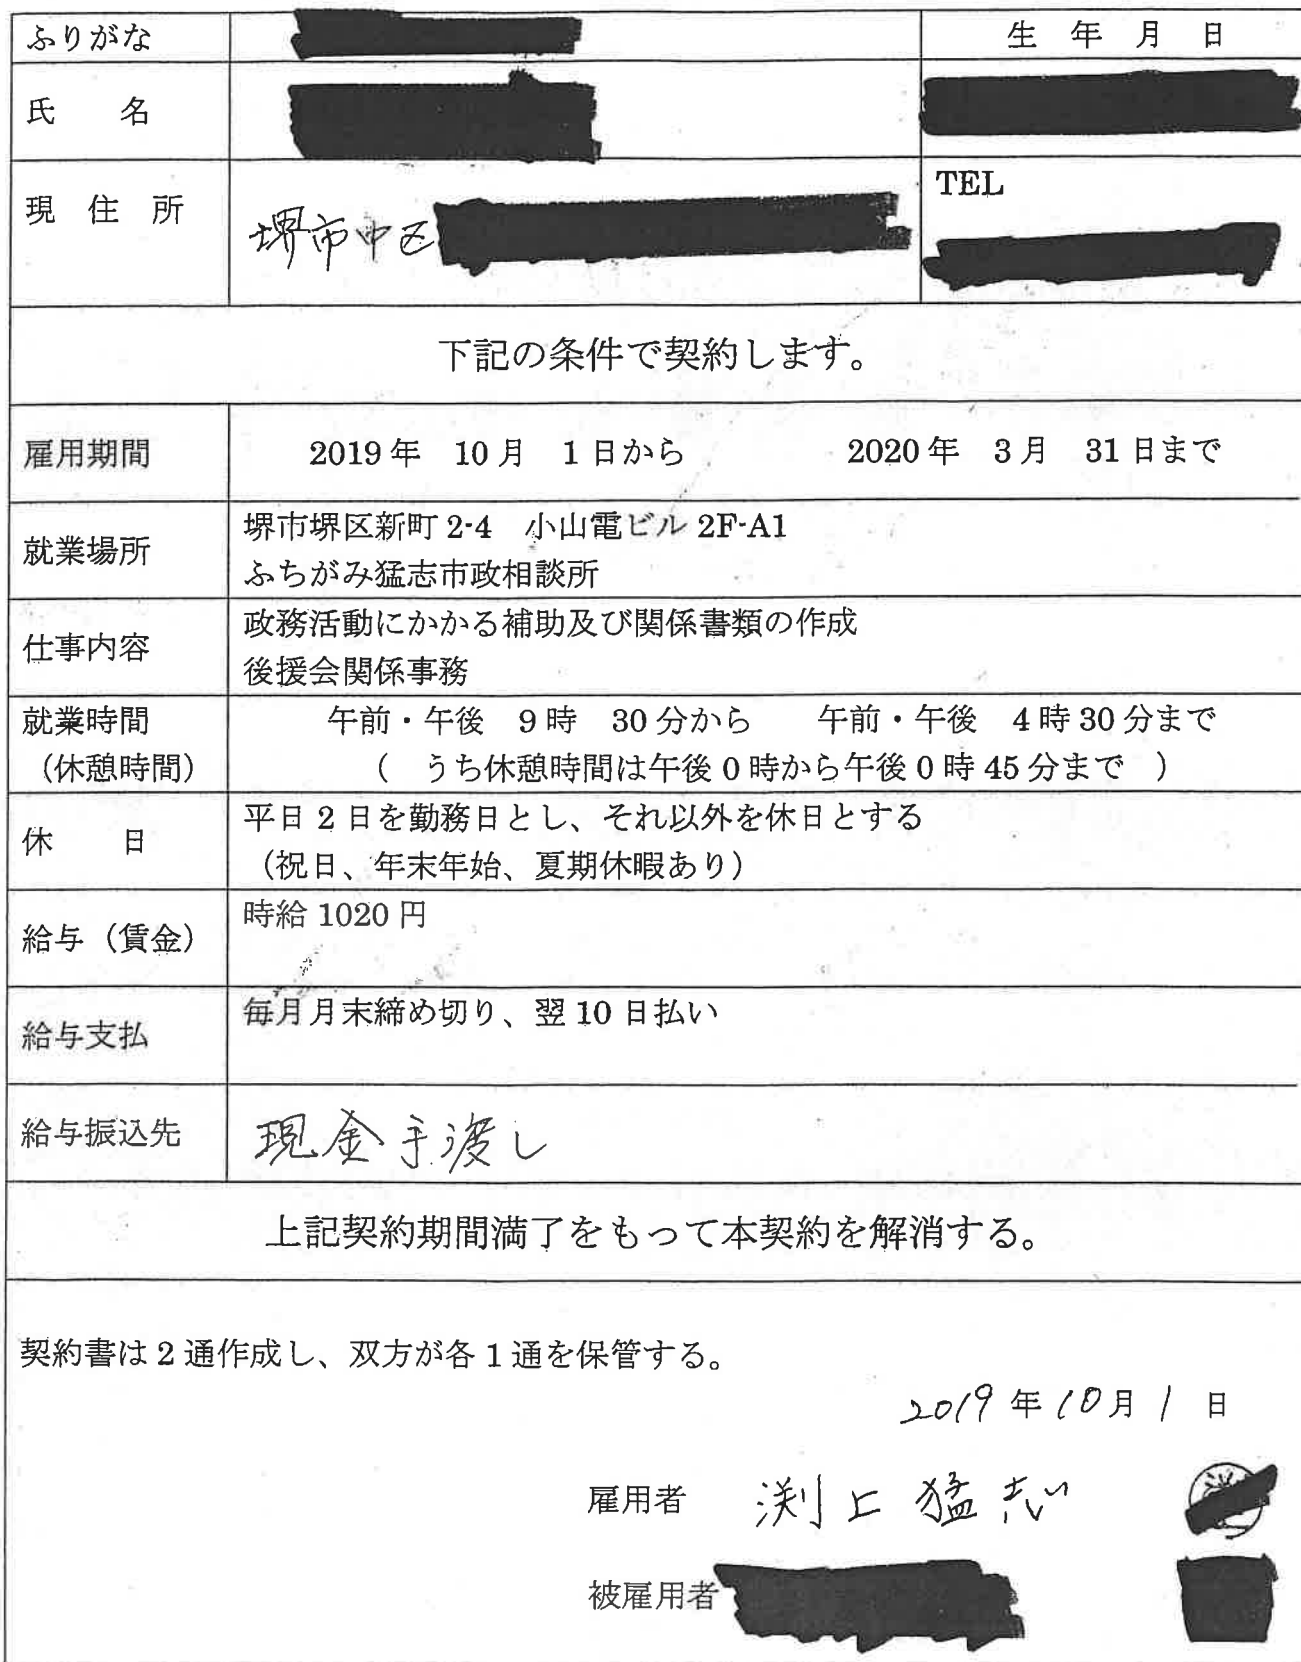 ふりがな
生 年 月 日
氏 名
現 住 所
堺市中区
TEL
下記の条件で契約します。
雇用期間
2019年 10月 1日から 2020年 3月 31日まで
就業場所
堺市堺区新町 2-4 小山電ビル 2F-A1
ふちがみ猛志市政相談所
仕事内容
政務活動にかかる補助及び関係書類の作成
後援会関係事務
就業時間
(休憩時間)
午前・午後 9時 30分から 午前・午後 4時30分まで
( うち休憩時間は午後0時から午後0時45分まで )
休 日
平日2日を勤務日とし、それ以外を休日とする
(祝日、年末年始、夏期休暇あり)
給与(賃金)
時給1020円
給与支払
毎月月末締め切り、翌10日払い
給与振込先
現金手渡し
上記契約期間満了をもって本契約を解消する。
契約書は2通作成し、双方が各1通を保管する。
2019年10月1日
雇用者 渕上猛志
被雇用者